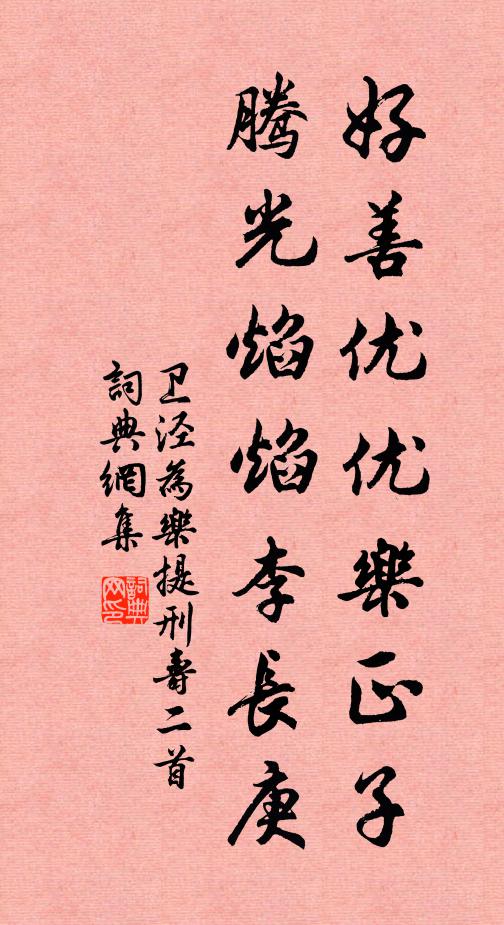 好善优优樂正子
腾光焰焰李長庚
卫泾為樂提刑壽二首
詞典網集
詞典网印